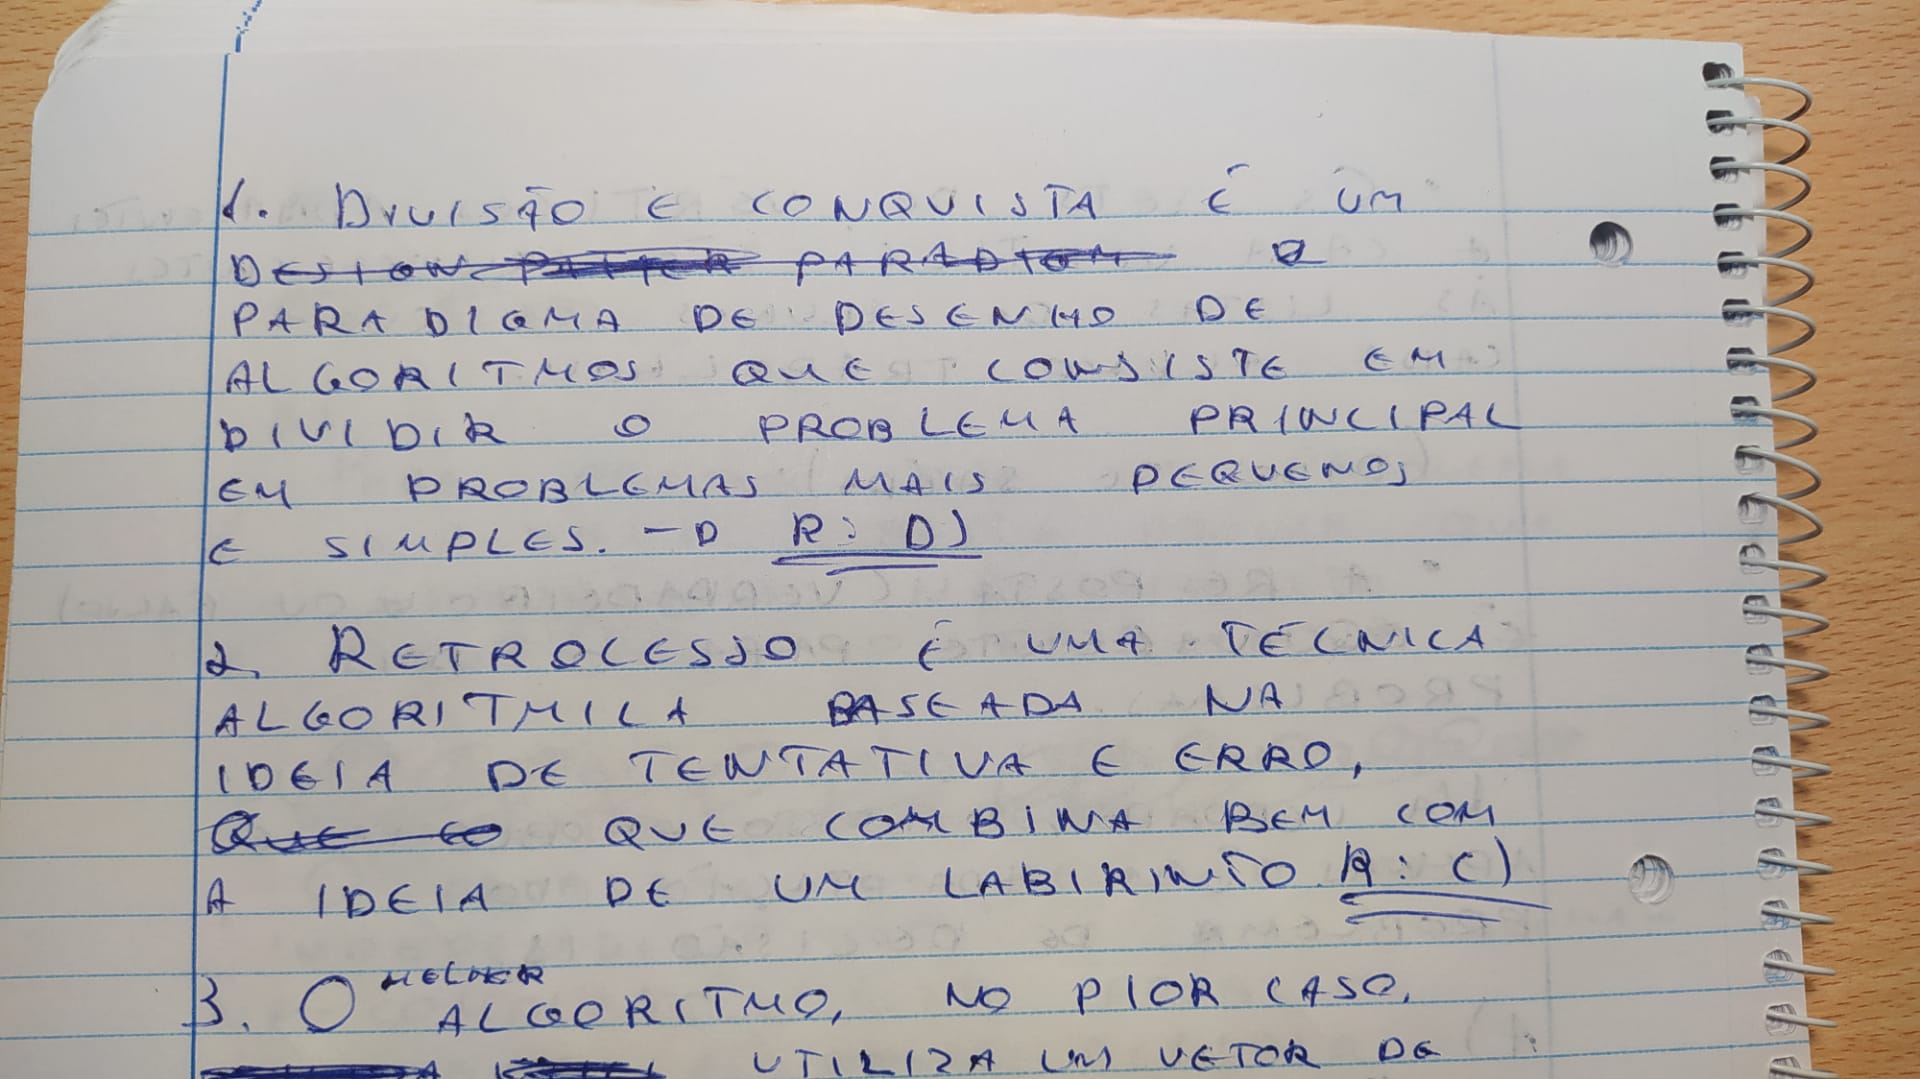 1. DIVISÃO E CONQUISTA É UM
DESIGN PATTER PARADIGM
PARADIGMA DE DESENHO DE
ALGORITMOS QUE CONSISTE EM
DIVIDIR O PROBLEMA PRINCIPAL
EM PROBLEMAS MAIS PEQUENOS
E SIMPLES. → R: D)
2. RETROCESSO É UMA TÉCNICA
ALGORITMICA BASEADA NA
IDEIA DE TENTATIVA E ERRO,
QUE CO QUE COMBINA BEM COM
A IDEIA DE UM LABIRINTO R: C)
3. O MELHOR ALGORITMO, NO PIOR CASO,
UTILIZA UM VETOR DE